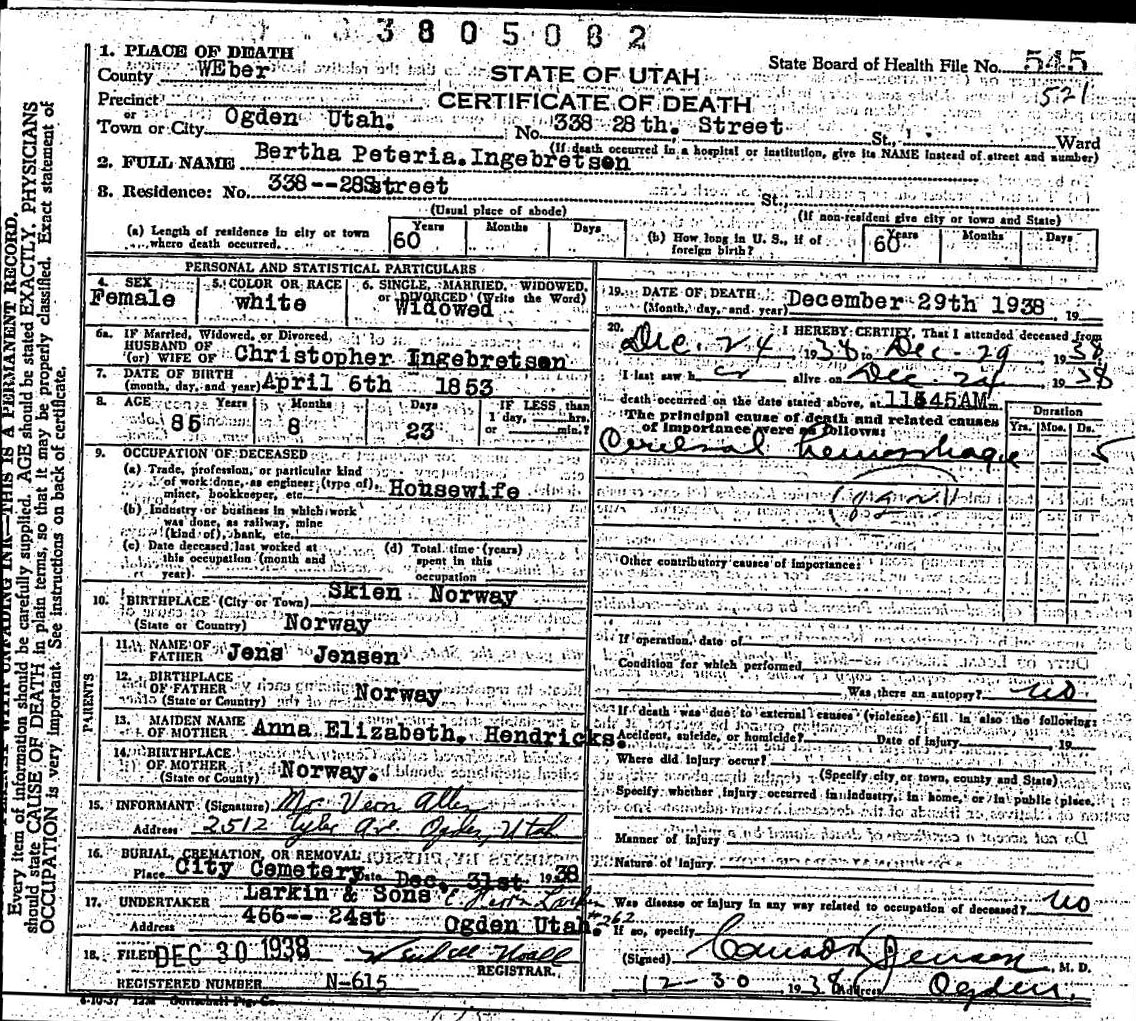 3805082
1. PLACE OF DEATH
County WEber
STATE OF UTAH
State Board of Health File No. 545
521
Precinct
CERTIFICATE OF DEATH
or
Town or City Ogden Utah. No. 338 28th. Street St., Ward
(If death occurred in a hospital or institution, give its NAME instead of street and number)
2. FULL NAME Bertha Peteria. Ingebretsen
3. Residence: No. 338--28Street St.,
(Usual place of abode)
(If non-resident give city or town and State)
(a) Length of residence in city or town where death occurred. 60 Years Months Days
(b) How long in U. S., if of foreign birth? 60 Years Months Days
PERSONAL AND STATISTICAL PARTICULARS
4. SEX Female
5. COLOR OR RACE white
6. SINGLE, MARRIED, WIDOWED, or DIVORCED (Write the Word) Widowed
6a. IF Married, Widowed, or Divorced,
HUSBAND OF
(or) WIFE OF Christopher Ingebretsen
7. DATE OF BIRTH
(month, day, and year) April 6th 1853
8. AGE 85 Years 8 Months 23 Days
IF LESS than
1 day, hrs.
or min.?
9. OCCUPATION OF DECEASED
(a) Trade, profession, or particular kind
of work done, as engineer (type of),
miner, bookkeeper, etc. Housewife
(b) Industry or business in which work
was done, as railway, mine
(kind of), bank, etc.
(c) Date deceased last worked at
this occupation (month and
year)
(d) Total time (years)
spent in this
occupation
10. BIRTHPLACE (City or Town) Skien Norway
(State or Country) Norway
PARENTS
11. NAME OF
FATHER Jens Jensen
12. BIRTHPLACE
OF FATHER
(State or Country) Norway
13. MAIDEN NAME
OF MOTHER Anna Elizabeth. Hendricks.
14. BIRTHPLACE
OF MOTHER
(State or County) Norway.
15. INFORMANT (Signature) Vern
Address 2512 Tyler Ave. Ogden, Utah
16. BURIAL, CREMATION, OR REMOVAL
Place City Cemetery Date Dec. 31st 1938
17. UNDERTAKER Larkin & Sons
Address 466-- 24st Ogden Utah. #262
18. FILED DEC 30 1938
REGISTRAR.
REGISTERED NUMBER N-615
6-10-37 12M
19. DATE OF DEATH
(Month, day, and year) December 29th 1938, 19
20. I HEREBY CERTIFY, That I attended deceased from
Dec. 24, 1938 to Dec-29 1938
I last saw h er alive on Dec-29 1938
death occurred on the date stated above, at 1145AM m.
The principal cause of death and related causes
of importance were as follows:
Duration
Yrs. Mos. Ds.
Cerebral hemorrhage 5
Other contributory causes of importance:
If operation, date of
Condition for which performed
Was there an autopsy? no
If death was due to external causes (violence) fill in also the following:
Accident, suicide, or homicide? Date of injury 19
Where did injury occur?
(Specify city or town, county and State)
Specify whether injury occurred in industry, in home, or in public place.
Manner of injury
Nature of injury
Was disease or injury in any way related to occupation of deceased? no
If so, specify
(Signed) Jensen, M. D.
12-30 1938 (Address) Ogden.
Every item of information should be carefully supplied. AGE should be stated EXACTLY. PHYSICIANS
should state CAUSE OF DEATH in plain terms, so that it may be properly classified. Exact statement of
OCCUPATION is very important. See instructions on back of certificate.